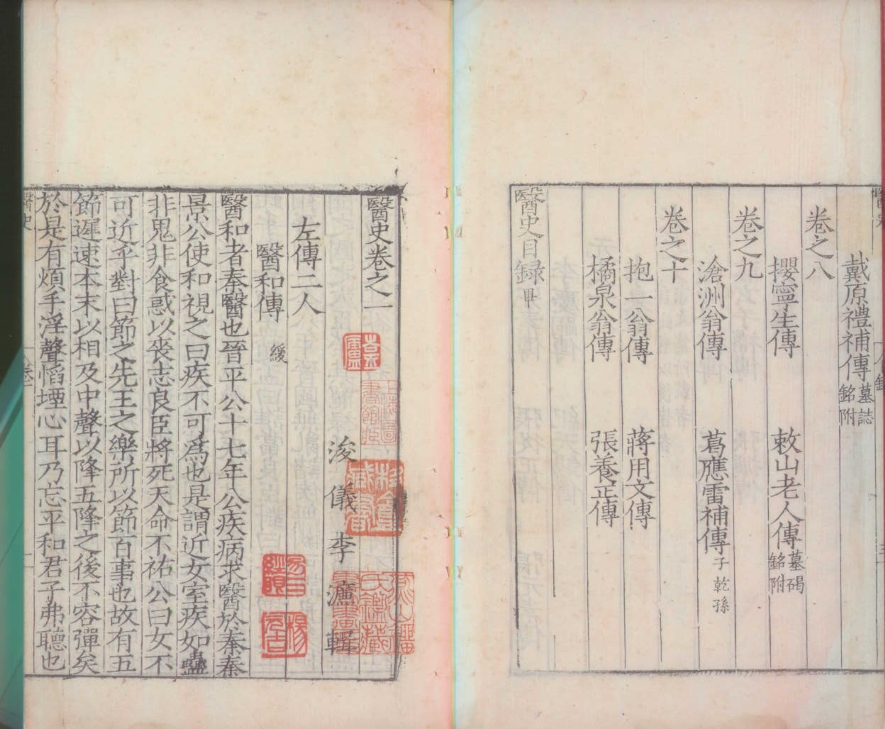 戴原禮補傳墓誌銘附
卷之八
攖寧生傳　敕山老人傳墓碣銘附
卷之九
滄洲翁傳　葛應雷補傳子乾孫
卷之十
抱一翁傳　蔣用文傳
橘泉翁傳　張養正傳
醫史目録畢
醫史卷之一
浚儀李濂輯
左傳二人
醫和傳緩
醫和者秦醫也晉平公十七年公疾病求醫於秦秦
景公使和視之曰疾不可為也是謂近女室疾如蠱
非鬼非食惑以喪志良臣將死天命不祐公曰女不
可近乎對曰節之先王之樂所以節百事也故有五
節遲速本末以相及中聲以降五降之後不容彈矣
於是有煩手淫聲慆堙心耳乃忘平和君子弗聽也
醫史
卷一
一